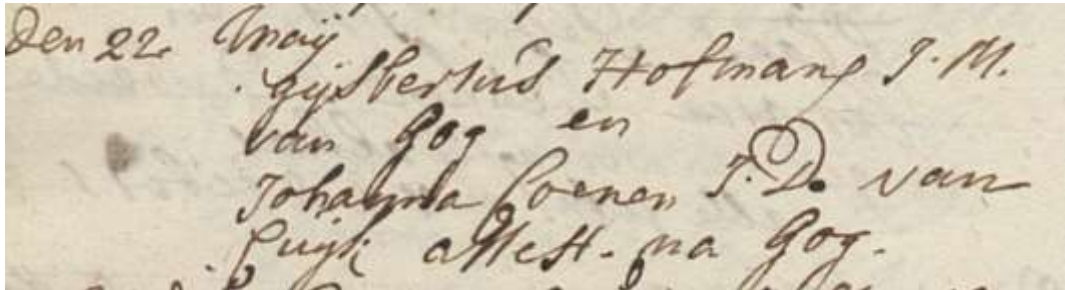 Den 22 Maÿ
Gijsbertus Hofmans J. M.
van Gog en
Johanna Coenen J. D. van
Cuijk attest. na Gog.